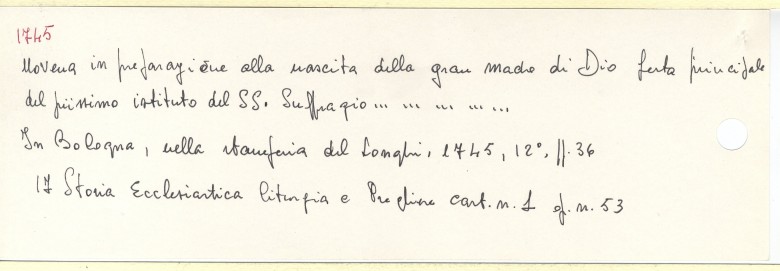 1745
Novena in preparazione alla nascita della gran madre di Dio festa principale
del piissimo istituto del SS. Suffragio ... ... ... ... ...
In Bologna, nella stamperia del Longhi, 1745, 12°, pp. 36
17 Storia Ecclesiastica liturgia e Preghiere cart. n. 1 n. 53